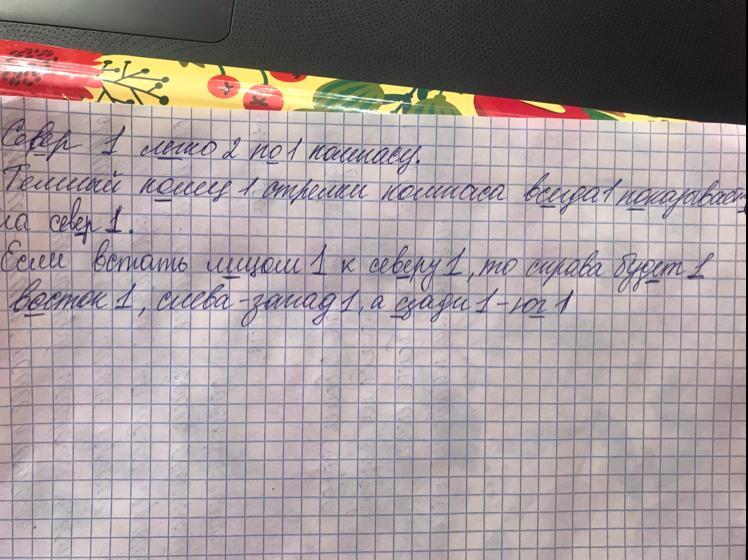 Север 1 легко 2 по 1 компасу.
Темный конец 1 стрелки компаса всегда 1 показывает
на север 1.
Если встать лицом 1 к северу 1, то справа будет 1
восток 1, слева - запад 1, а сзади 1 - юг 1